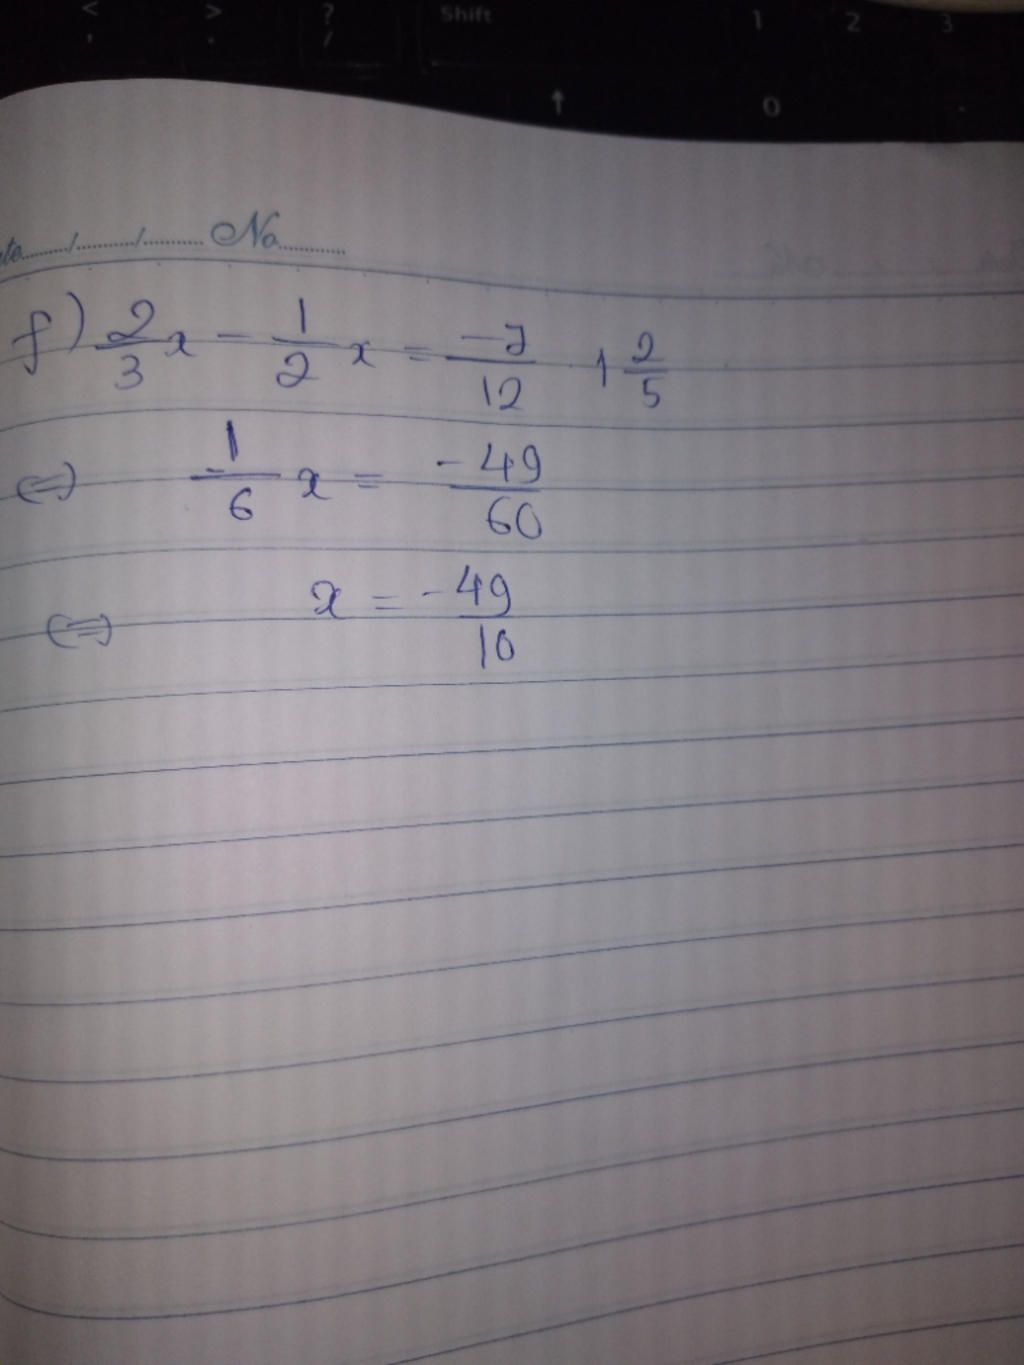 < > ? Shift 1 2 3
, . / ↑ 0 .
No
f) 2/3 x - 1/2 x = -7/12 1 2/5
<=> 1/6 x = -49/60
<=> x = -49/10